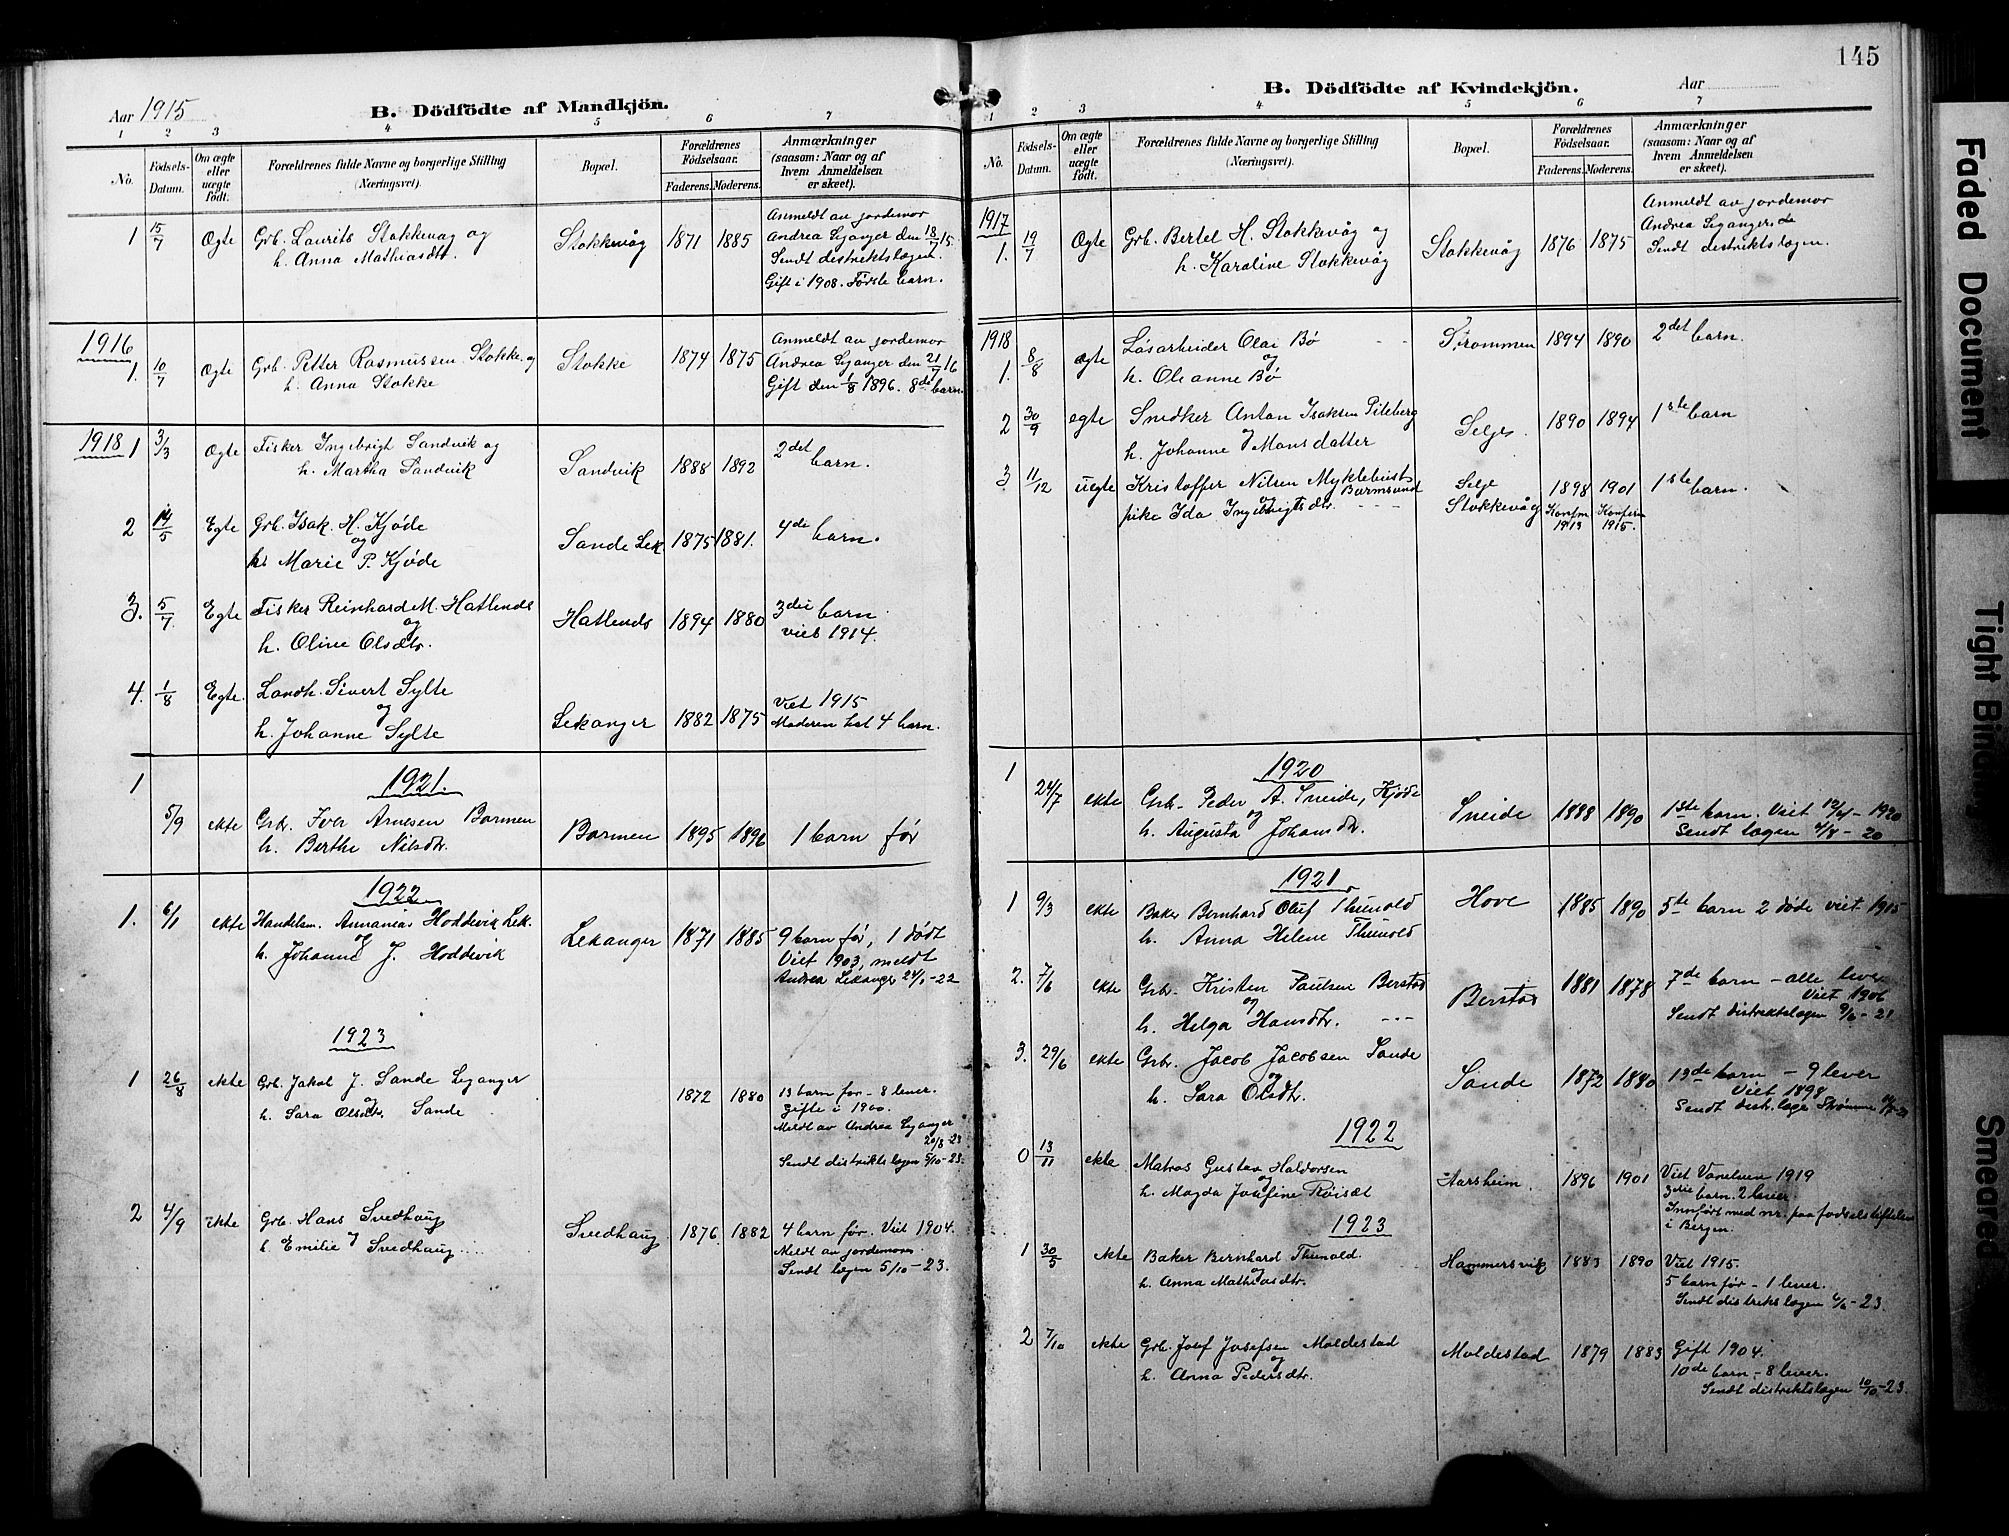 Aar 1915
B. Dödfödte af Mandkjön.
1 2 3 4 5 6 7
No.
Födsels-Datum.
Om ægte eller uægte födt.
Forældrenes fulde Navne og borgerlige Stilling (Næringsvei).
Bopæl.
Forældrenes Födselsaar.
Faderens. Moderens.
Anmærkninger (saasom: Naar og af hvem Anmeldelsen er skeet).
1 15/7 Ægte Grb. Laurits Stokkevag og Stokkevåg 1871 1885 Anmeldt av jordemor
h. Anna Mathiasdtr. Andrea Leganger den 18/7 15.
Sendt distriktslægen.
Gift i 1908. Første barn.
1916
1. 10/7 Ægte Grb. Petter Rasmussen Stokke og Stokke 1874 1875 Anmeldt av jordemor
h. Anna Stokke Andrea Leganger den 21/7 16
Gift den 1/8 1896. 8de barn.
1918 1 3/3 Ægte Fisker Ingebrigt Sandvik og Sandvik 1888 1892 2det barn.
h. Martha Sandvik
2 14/5 Egte Grb. Isak. H. Kjøde Sande Lek 1875 1881. 4de barn.
og
h. Marie P. Kjøde
3. 5/7 Egte Fisker Reinhard M. Hatlenes Hatlenes 1894 1880 3die barn
og viet 1914.
h. Oline Olsdtr.
4. 1/8 Egte. Landh. Sivert Sylte Lekanger 1882 1875 Viet 1915
og Moderen hat 4 barn.
h. Johanne Sylte
1921.
1 5/9 ekte Grb. Iver Arnesen Barmen Barmen 1895 1896 1 barn før
h. Berthe Nilsdtr.
1922
1. 6/1 ekte Handelsm. Annanias Hoddevik Lek. Lekanger 1871 1885 9 barn før, 1 dødt
og Viet 1903, meldt
h. Johanne J. Hoddevik Andrea Lekanger 24/1-22
1923
1 26/8 ekte Grb. Jakob J. Sande Leganger 1872 1880 13 barn før - 8 lever.
og gifte i 1900.
h. Sara Olsdtr. Sande Meldt av Andrea Leganger
20/8-23
Sendt distriktslægen 5/10-23.
2 4/9 ekte Grb. Hans Svedhaug Svedhaug 1876 1882 4 barn før. Viet 1904.
h. Emilie Svedhaug Meldt av jordemoren.
Sendt lægen 5/10-23.
145
B. Dödfödte af Kvindekjön.
Aar
1 2 3 4 5 6 7
No.
Födsels-Datum.
Om ægte eller uægte födt.
Forældrenes fulde Navne og borgerlige Stilling (Næringsvei).
Bopæl.
Forældrenes Födselsaar.
Faderens. Moderens.
Anmærkninger (saasom: Naar og af hvem Anmeldelsen er skeet).
1917
1. 19/7 Ægte Grb. Bertel H. Stokkevåg og Stokkevåg 1876 1875 Anmeldt av jordemor
h. Karoline Stokkevåg Andrea Leganger,
Sendt distriktslægen.
1918
1. 8/8 ægte Løsarbeider Olai Bø Strømmen 1894 1890 2det barn.
og
h. Oleanne Bø
2 30/9 egte Snedker Anton Isaksen Pileberg Selje. 1890 1894 1ste barn
og
h. Johanne Monsdatter
3 11/12 uegte Kristoffer Nilsen Myklebust Selje 1898 1901 1ste barn.
og Barmsund
pike Ida Ingebrigtsdtr. Stokkevåg Konfm 1913 Konferm 1915.
1920
1 24/7 ekte Grb. Peder A. Sneide, Kjøde Sneide 1888 1890 1ste barn. Viet - 1920
h. Augusta og Johansdtr. Sendt lægen 4/8 - 20
1921
1 9/3 ekte Baker Bernhard Oluf Thunold Hove 1885 1890 5te barn 2 døde viet 1915
h. Anna Helene Thunold
2. 7/6 ekte Grb. Kristen Paulsen Berstad Berstad 1881 1878 7de barn - alle lever
og Viet 1906
h. Helga Hansdtr. Sendt distriktslægen 9/6 - 21
3. 29/6 ekte Grb. Jacob Jacobsen Sande Sande 1872 1880 13de barn - 9 lever
og Viet 1898
h. Sara Olsdtr. Sendt distr. læge Strømme
1922
0 13/11 ekte Matros Gustav Haldorsen Aarsheim 1896 1901 Viet Vanelven 1919
og 3die barn. 2 lever.
h. Magda Josefine Røiset Innført med nr. paa fødselstiftelsen
i Bergen.
1923
1 30/5 ekte Baker Bernhard Thunold. Hammersvik 1883 1890 Viet 1915.
og 5 barn før - 1 lever.
h. Anna Mathiasdtr. Sendt distriktslægen 4/6-23.
2 7/10 ekte Grb. Josef Josefsen Moldestad Moldestad 1879 1883 Gift 1904.
og 10de barn - 8 lever.
h. Anna Pedersdtr. Sendt distriktslægen 10/10-23.
Faded Document
Tight Binding
Smeared